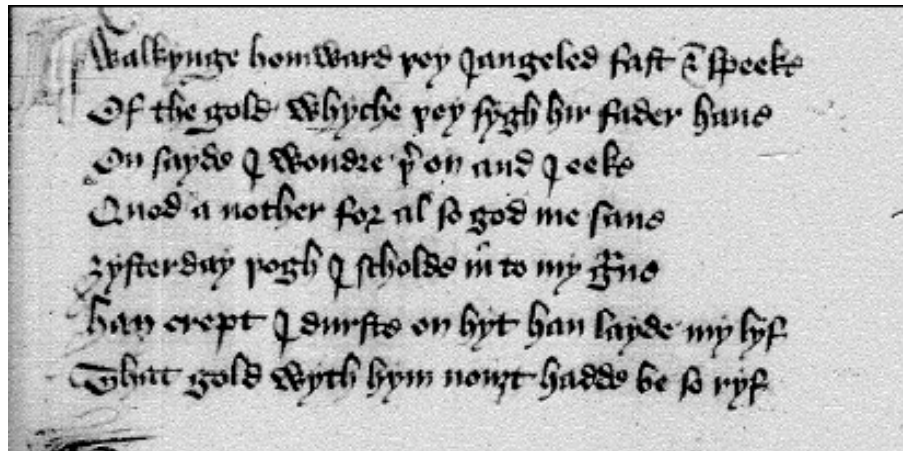 Walkynge homward þey Jangeled fast & speeke
Of the gold whyche þey sygh hir fader haue
On sayde J wondre þᵉ on and J eeke
Quod a nother for al so god me saue
Ȝysterday þogh J scholde in to my gͬue
han crept J durste on hyt han layde my lyf
That gold wyth hym nouȝt hadde be so ryf